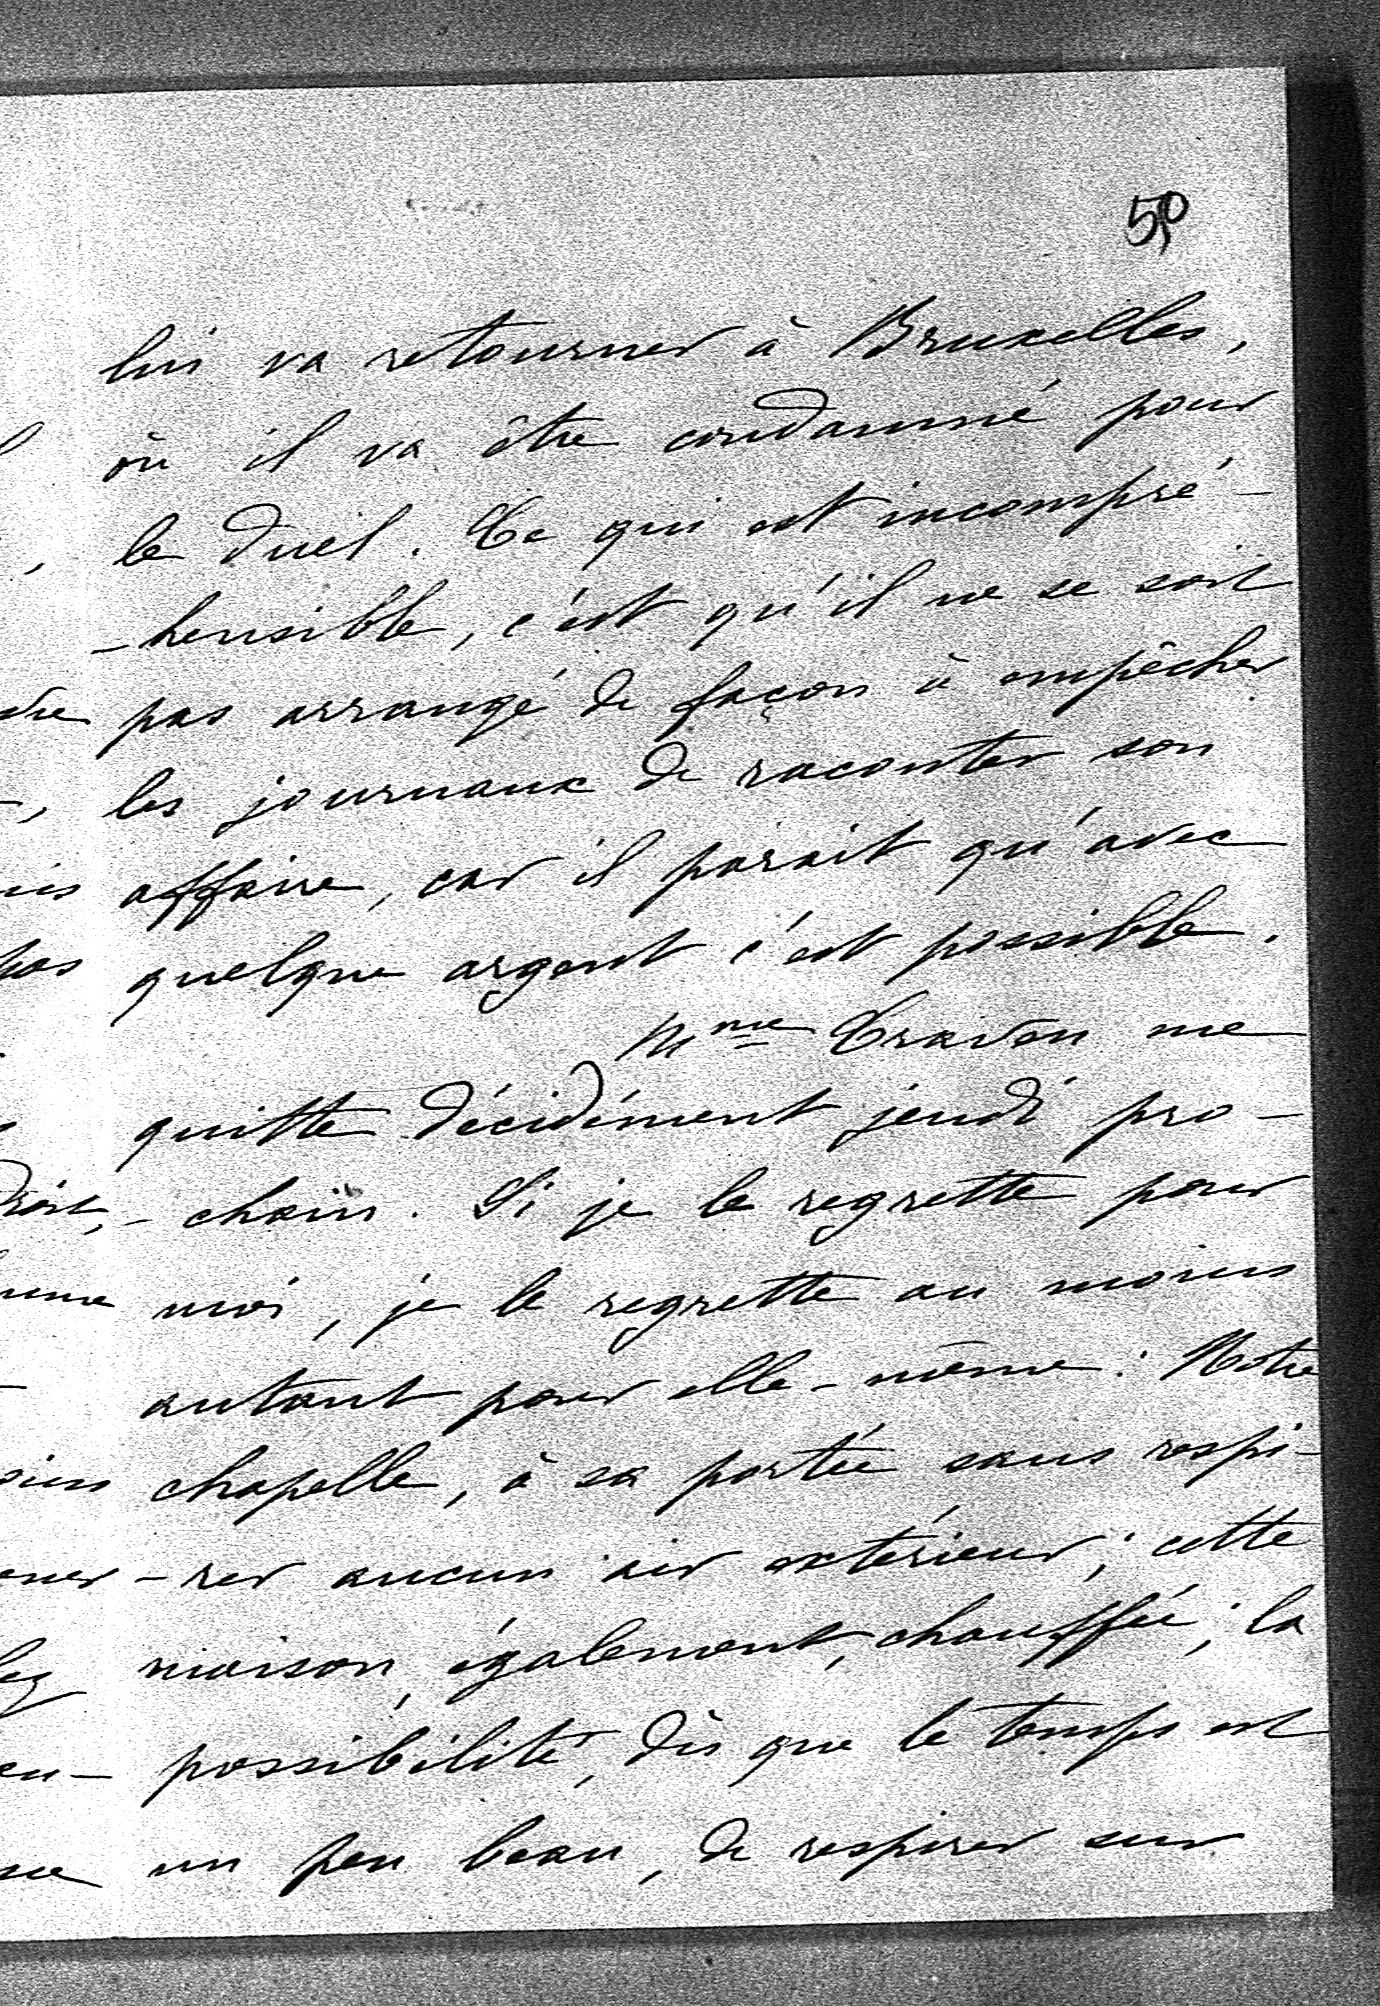 50
lui va retourner à Bruxelles,
où il va être condamné pour
le duel. Ce qui est incompré-
-hensible, c'est qu'il ne se soit
pas arrangé de façon à empêcher
les journaux de raconter son
affaire, car il parait qu'avec
quelque argent c'est possible.
Mme Cravon me
quitte décidément jeudi pro-
-chain. Si je le regrette pour
moi, je le regrette au moins
autant pour elle-même: Notre
chapelle, à sa portée sans respi-
-rer aucun air extérieur; cette
maison, également chauffée; la
possibilité, dès que le temps est
un peu beau, de respirer sur